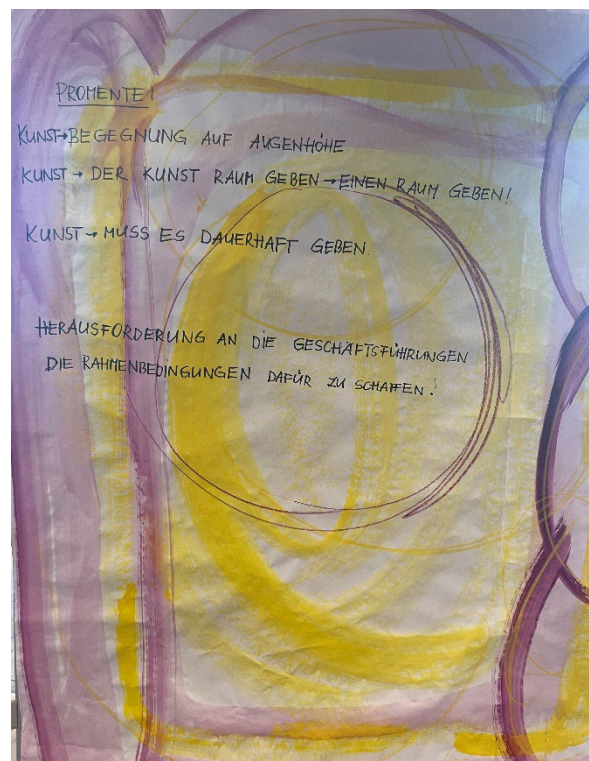 PROMENTE!
KUNST→BEGEGNUNG AUF AUGENHÖHE
KUNST → DER KUNST RAUM GEBEN → EINEN RAUM GEBEN!
KUNST → MUSS ES DAUERHAFT GEBEN.
HERAUSFORDERUNG AN DIE GESCHÄFTSFÜHRUNGEN
DIE RAHMENBEDINGUNGEN DAFÜR ZU SCHAFFEN!